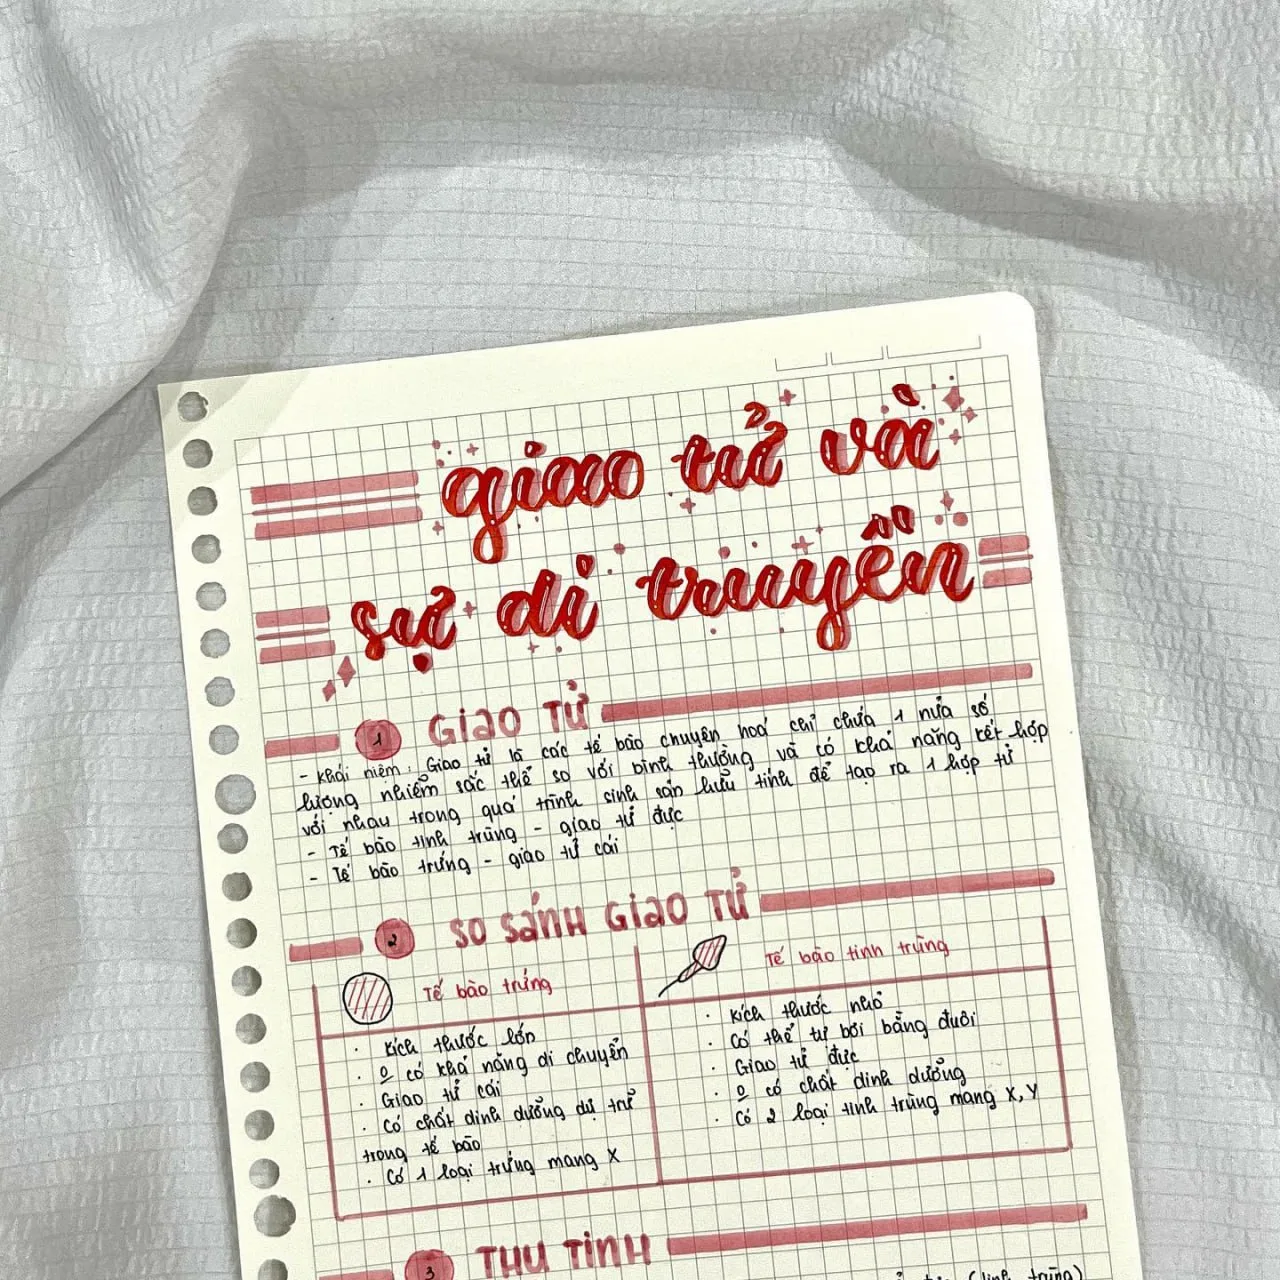 giao tử và
sự di truyền
1 GIAO TỬ
- Khái niệm: Giao tử là các tế bào chuyên hoá chỉ chứa 1 nửa số
lượng nhiễm sắc thể so với bình thường và có khả năng kết hợp
với nhau trong quá trình sinh sản hữu tính để tạo ra 1 hợp tử
- Tế bào tinh trùng - giao tử đực
- Tế bào trứng - giao tử cái
2 SO SÁNH GIAO TỬ
Tế bào trứng
· Kích thước lớn
· 0 có khả năng di chuyển
· Giao tử cái
· Có chất dinh dưỡng dự trữ
trong tế bào
· Có 1 loại trứng mang X
Tế bào tinh trùng
· Kích thước nhỏ
· Có thể tự bơi bằng đuôi
· Giao tử đực
· 0 có chất dinh dưỡng
· Có 2 loại tinh trùng mang X, Y
3 THỤ TINH
(tinh trùng)